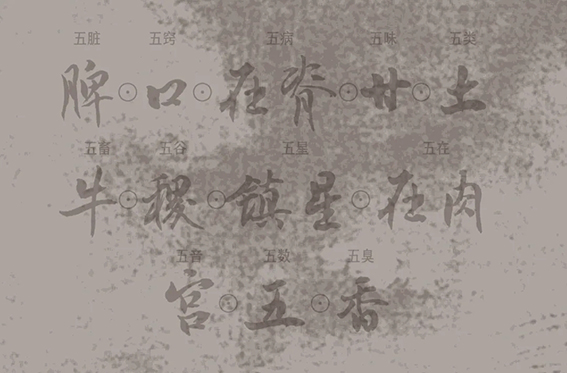 五脏 五窍 五病 五味 五类
脾⊙口⊙在脊⊙甘⊙土
五畜 五谷 五星 五在
牛⊙稷⊙镇星⊙在肉
五音 五数 五臭
宫⊙五⊙香